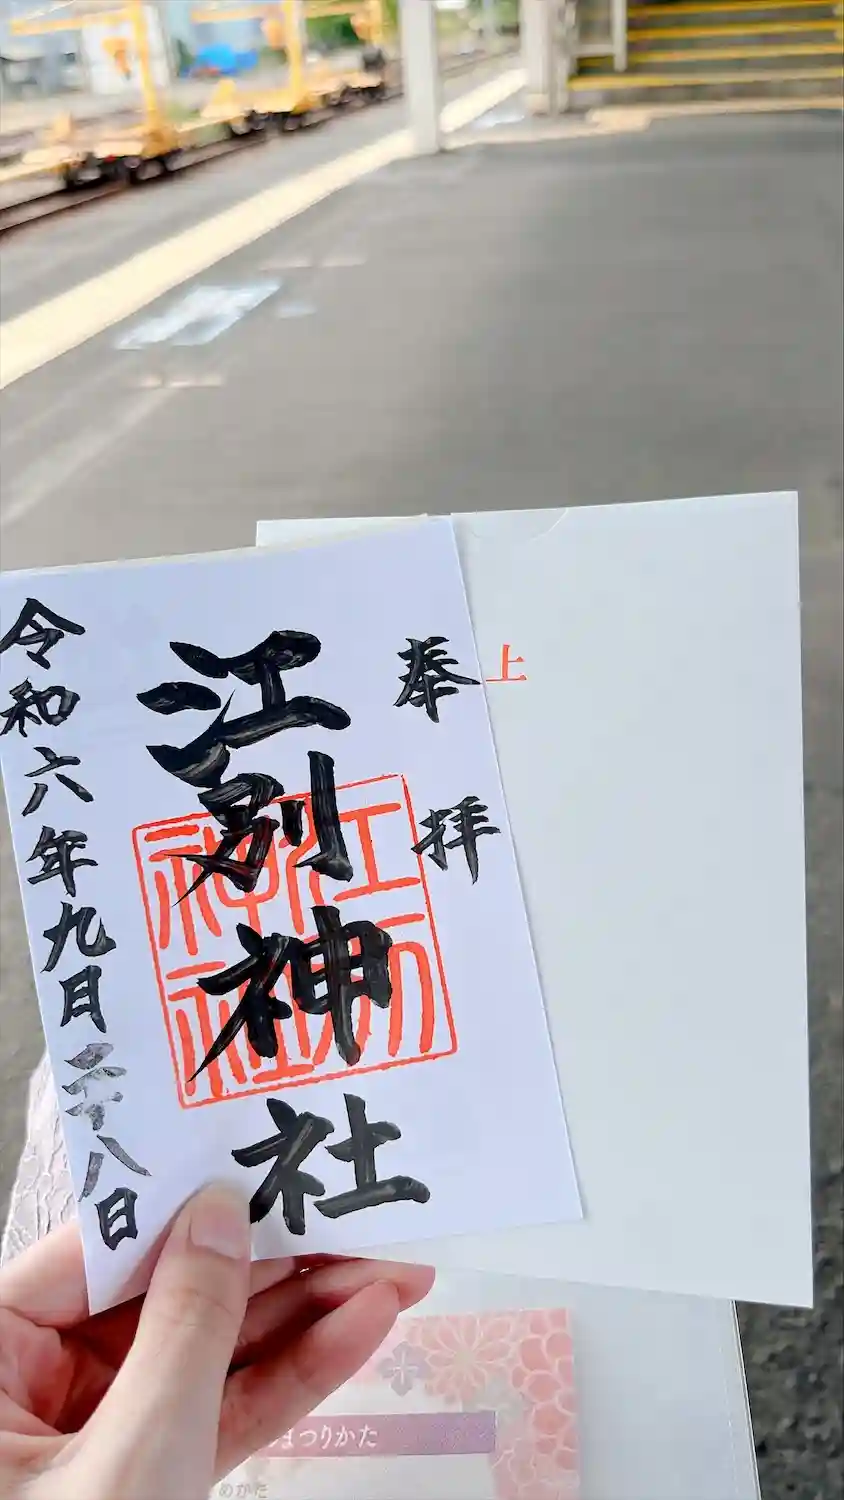 奉拝
江別神社
江別神社
令和六年九月二十八日
上
まつりかた
めかた